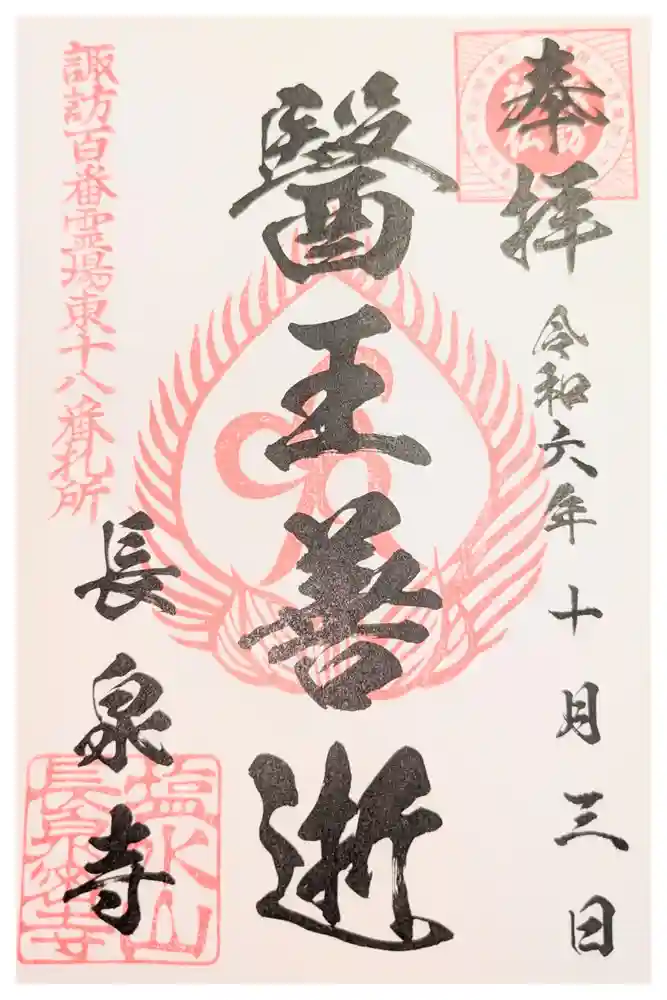 奉拝
令和六年十月三日
醫王善逝
諏訪百番霊場東十八番札所
長泉寺
塩水山
長泉寺